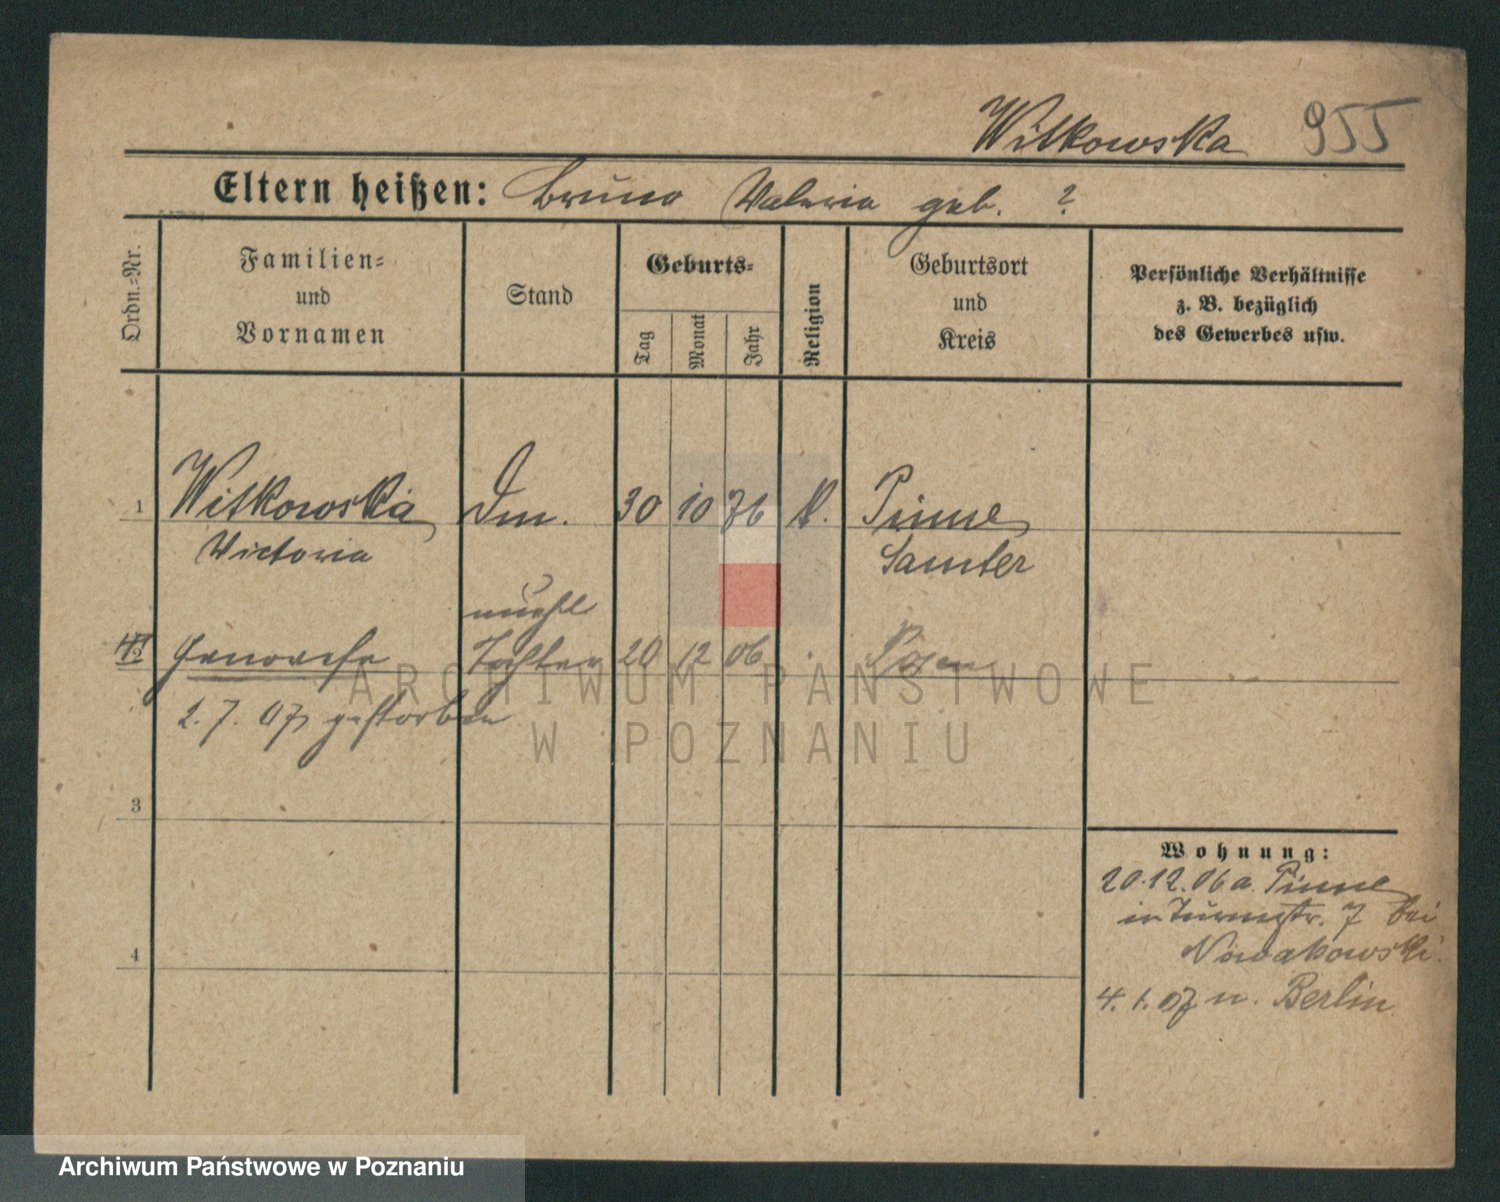 Witkowska 955
Eltern heißen: Bruno Valeria geb. ?
Ordn.-Nr.
Familien-
und
Vornamen
Stand
Geburts-
Tag
Monat
Jahr
Religion
Geburtsort
und
Kreis
Persönliche Verhältnisse
z. B. bezüglich
des Gewerbes usw.
1 Witkowska Dm. 30 10 76 K. Pinne
Victoria Samter
unehl
2 Tochter 20 12 06 Posen
2. 7. 07 gestorben
3
4
Wohnung:
20.12.06 a. Pinne
in Turmstr. 7 bei
Nowakowski.
4. 1. 07 n. Berlin
ARCHIWUM PAŃSTWOWE
W POZNANIU
Archiwum Państwowe w Poznaniu